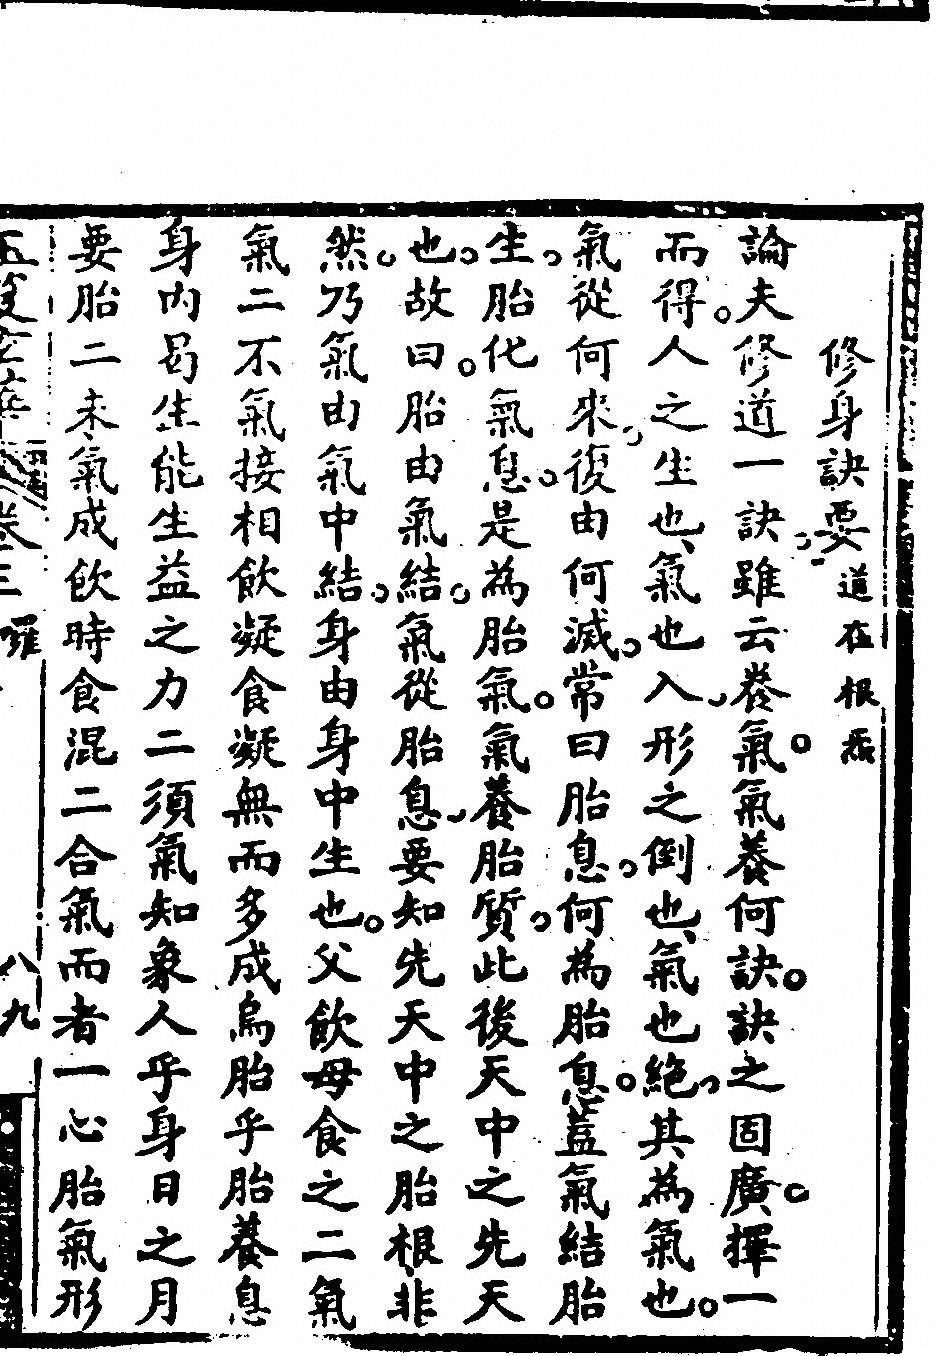 修身訣要 道在根炁
論夫修道一訣雖云養氣氣養何訣訣之固廣擇一
而得人之生也氣也入形之倒也氣也絕其為氣也
氣從何來復由何滅常曰胎息何為胎息蓋氣結胎
生胎化氣息是為胎氣氣養胎質此後天中之先天
也故曰胎由氣結氣從胎息要知先天中之胎根非
然乃氣由氣中結身由身中生也父飲母食之二氣
氣二不氣接相飲凝食凝無而多成烏胎乎胎養息
身內曷生能生益之力二須氣知象人乎身日之月
要胎二未氣成飲時食混二合氣而者一心胎氣形
卷三 八九